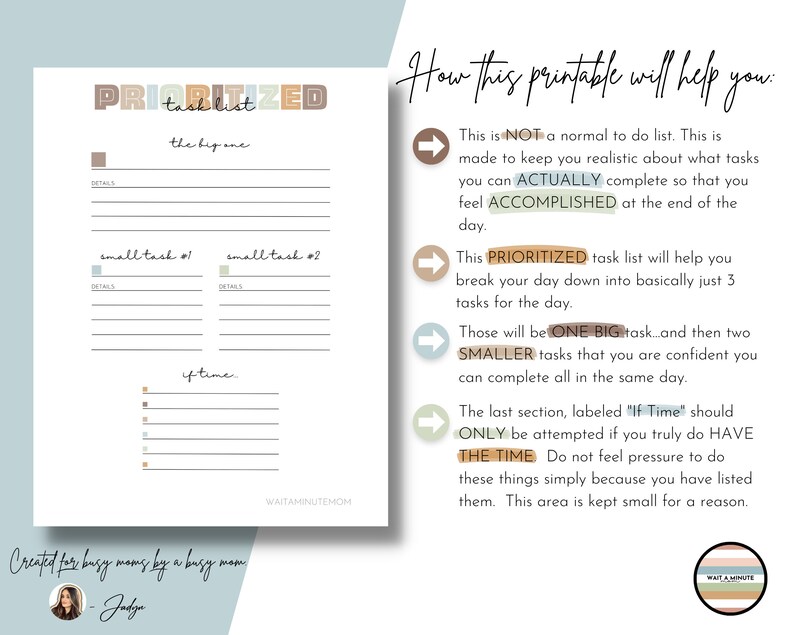 PRIORITIZED
task list
the big one
DETAILS:
small task #1
small task #2
DETAILS:
DETAILS:
if time...
WAITAMINUTEMOM
Created for busy moms by a busy mom.
- Jadyn
How this printable will help you:
This is NOT a normal to do list. This is
made to keep you realistic about what tasks
you can ACTUALLY complete so that you
feel ACCOMPLISHED at the end of the
day.
This PRIORITIZED task list will help you
break your day down into basically just 3
tasks for the day.
Those will be ONE BIG task...and then two
SMALLER tasks that you are confident you
can complete all in the same day.
The last section, labeled "If Time" should
ONLY be attempted if you truly do HAVE
THE TIME. Do not feel pressure to do
these things simply because you have listed
them. This area is kept small for a reason.
WAIT A MINUTE
mom